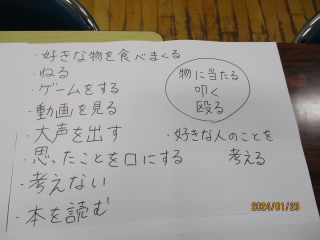 ・好きな物を食べまくる
・ねる
・ゲームをする
・動画を見る
・大声を出す
・思ったことを口にする
・考えない
・本を読む
物に当たる
叩く
殴る
・好きな人のことを
考える
2024/01/23